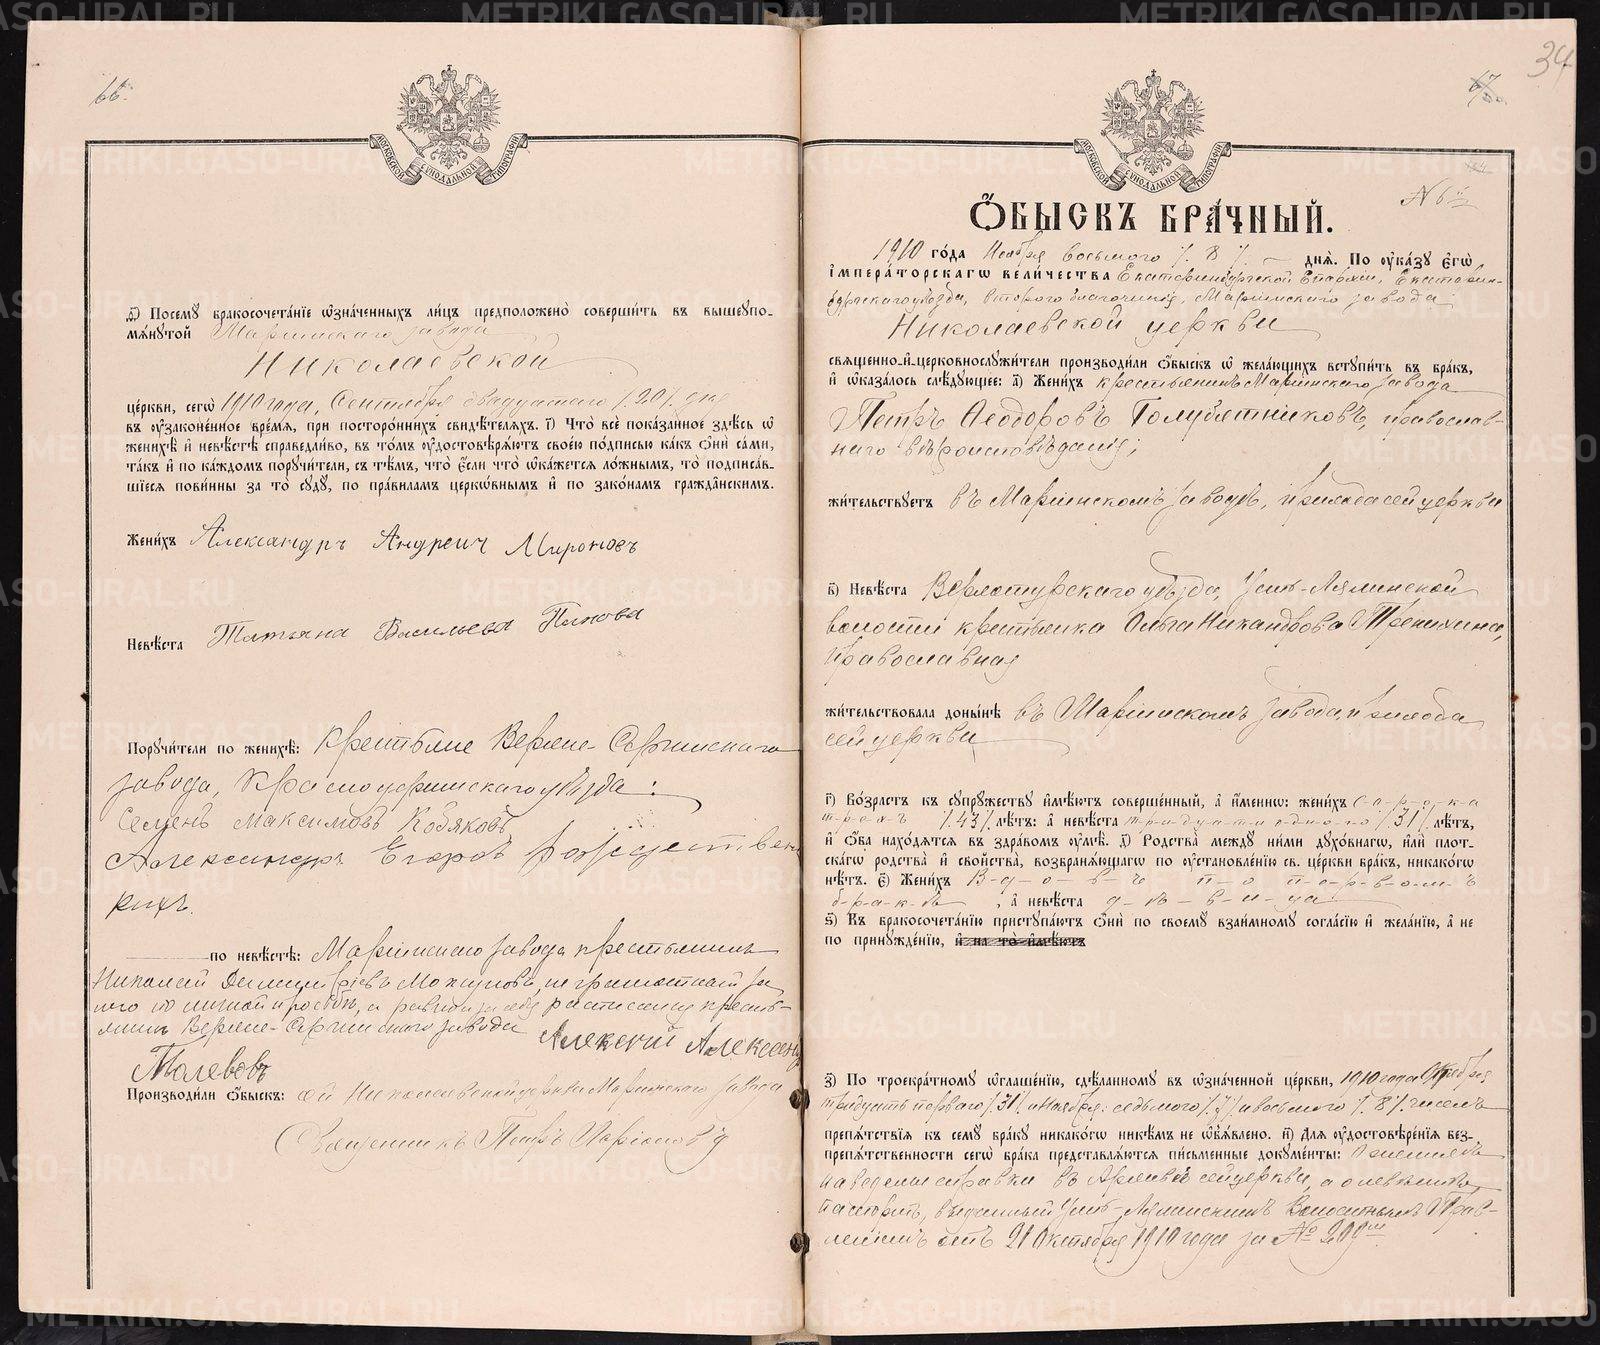 66.
МОСКОВСКОЙ СѴНОДАЛЬНОЙ ТИПОГРАФІИ
Посемꙋ бракосочета́нїе ѡ҆зна́ченныхъ ли́цъ предположено̀ соверши́ть въ вышеꙋпо-
мѧ́нꙋтой Маріинскаго завода
Николаевской
це́ркви, сегѡ̀ 1910 года, Сентября двадцатаго /.20/. дня
въ ѹ҆зако́ненное вре́мѧ, при посторо́ннихъ свидѣ́телѧхъ. Что̀ всѐ пока́занное здѣ́сь ѡ҆
женихѣ̀ и҆ невѣ́стѣ справедли́во, въ то́мъ ѹ҆достовѣрѧ́ютъ свое́ю по́дписью ка́къ ѻ҆нѝ са́ми,
та́къ и҆ по ка́ждомъ порꙋчи́тели, съ тѣ́мъ, что̀ є҆́сли что̀ ѡ҆ка́жетсѧ ло́жнымъ, то̀ подписа́в-
шїесѧ пови́нны за то̀ сꙋдꙋ̀, по пра́виламъ церкѡ́внымъ и҆ по зако́намъ гражда́нскимъ.
Жени́хъ Александръ Андреич Мироновъ
Невѣ́ста Татьяна Васильева Панова
Порꙋчи́тели по женихѣ̀: Крестьяне Верхне-Сергинскаго
завода, Красноуфимскаго уѣзда:
Семенъ Максимовъ Кобяковъ
Александръ Егоровъ Рождествен
кихъ.
по невѣ́стѣ: Маріинскаго завода крестьянинъ
Николай Димитріевъ неграмотный за
него по личной просьбѣ, а равно и за себя расписался кресть-
янинъ Верхне-Сергинскаго завода Алексѣй Алексеевъ
Производи́ли ѻ҆́быскъ: сей Николаевской церкви Маріинскаго завода
Священникъ Петръ
34
МОСКОВСКОЙ СѴНОДАЛЬНОЙ ТИПОГРАФІИ
Ѻ҆́БЫСКЪ БРА́ЧНЫЙ.
1910 го́да Ноября восьмого /. 8 /. днѧ̀. По ѹ҆ка́зꙋ є҆гѡ̀
і҆мпера́торскагѡ вели́чества Екатеринбургской Епархіи, Екатерин-
бургскаго уѣзда, второго благочинія, Маріинскаго завода
Николаевской церкви
свѧще́нно-и҆-церковнослꙋжи́тели производи́ли ѻ҆́быскъ ѡ҆ жела́ющихъ встꙋпи́ть въ бра́къ,
и҆ ѡ҆каза́лось слѣ́дꙋющее: а҃) Жени́хъ крестьянинъ Маріинскаго завода
Петръ Ѳеодоровъ Голубятниковъ, православ-
наго вѣроисповѣданія;
жи́тельствꙋетъ въ Маріинскомъ заводѣ, прихода сей церкви
в҃) Невѣ́ста Верхотурскаго уѣзда, Усть-Лялинской
волости крестьянка Ольга Никандрова Тренихина,
православная
жи́тельствовала доны́нѣ въ Маріинскомъ завода, прихода
сей церкви
г҃) Во́зрастъ къ сꙋпрꙋ́жествꙋ и҆мѣ́ютъ соверше́нный, а҆ и҆́менно: жени́хъ с-о-р-о-к-а
т-р-е-хъ /.43/. лѣ́тъ: а҆ невѣ́ста тридцати одного /.31/. лѣ́тъ,
и҆ ѻ҆́ба нахо́дѧтсѧ въ здра́вомъ ѹ҆мѣ̀. д҃) Родства̀ междꙋ ни́ми дꙋхо́внагѡ, и҆лѝ пло́т-
скагѡ родства̀ и҆ сво́йства, возбранѧ́ющагѡ по ѹ҆становле́нїю св. це́ркви бра́къ, никако́гѡ
нѣ́тъ. є҃) Жени́хъ В-д-о-в-ъ п-о п-е-р-в-о-м-ъ
б-р-а-к-ѣ, а҆ невѣ́ста д-ѣ-в-и-ца.
ѕ҃) Къ бракосочета́нїю пристꙋпа́ютъ ѻ҆нѝ по своемꙋ̀ взаи́мномꙋ согла́сїю и҆ жела́нїю, а҆ не
по принꙋжде́нїю, и҆ на то̀ и҆мѣ́ютъ
з҃) По троекра́тномꙋ ѡ҆глаше́нїю, сдѣ́ланномꙋ въ ѡ҆зна́ченной це́ркви, 1910 года Октября
тридцать перваго /.31/. и Ноября: седьмого /.7/. и восьмого /. 8/. чиселъ
препѧ́тствїѧ къ семꙋ̀ бра́кꙋ никако́гѡ никѣ́мъ не ѡ҆б̾ѧ́влено. и҃) Длѧ ѹ҆достовѣре́нїѧ без-
препѧ́тственности сегѡ̀ бра́ка представлѧ́ютсѧ пи́сьменные докꙋме́нты: О женихѣ
наведены справки въ Архивѣ сей церкви, а о невѣстѣ
паспортъ, выданный Усть-Лялинскимъ Волостнымъ Прав-
леніемъ отъ 21 Октября 1910 года за № 209